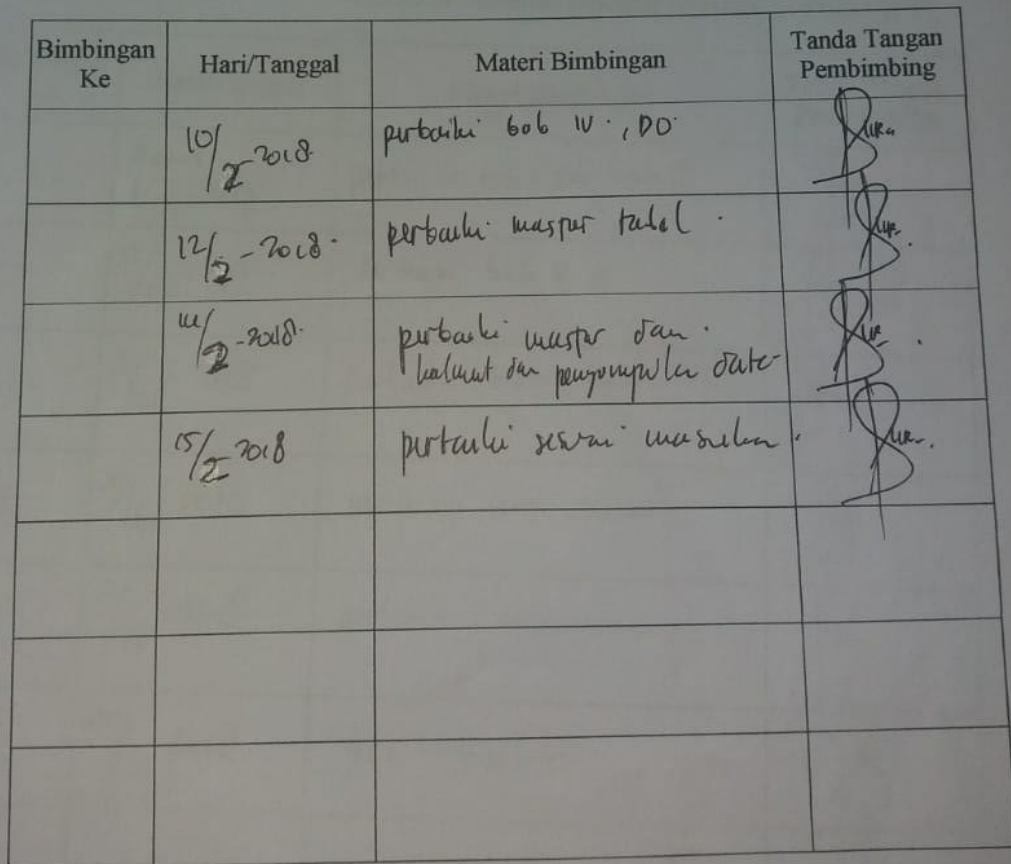 Bimbingan Ke
Hari/Tanggal
Materi Bimbingan
Tanda Tangan Pembimbing
10/2 2018
perbaiki bab IV , DO
12/2 - 2018
perbaiki
14/2 - 2018
perbaiki dan
kalimat dan data
15/2 2018
perbaiki sesuai masukan